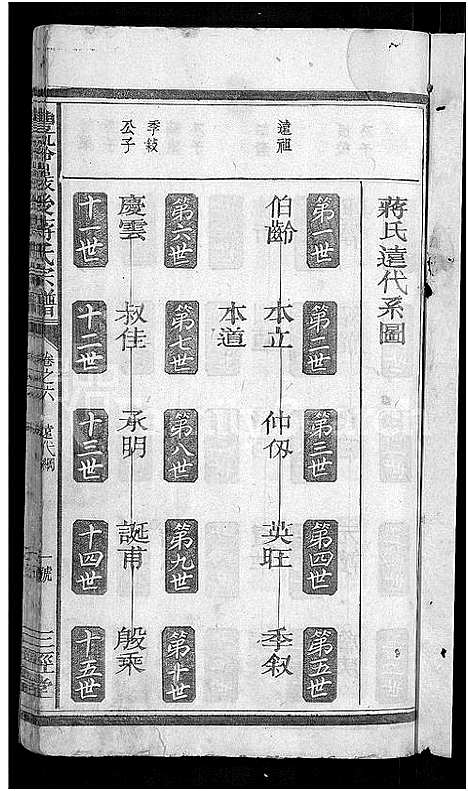 蔣氏遠代系圖
遠祖
第一世 第二世 第三世 第四世 第五世
伯齡 本立 仲仭 英旺 季叙
本道
季叙公子
第六世 第七世 第八世 第九世 第十世
慶雲 叔佳 承明 誕甫 殷乘
十一世 十二世 十三世 十四世 十五世
後蔣氏宗譜 卷之六 遠代 一號 三徑堂